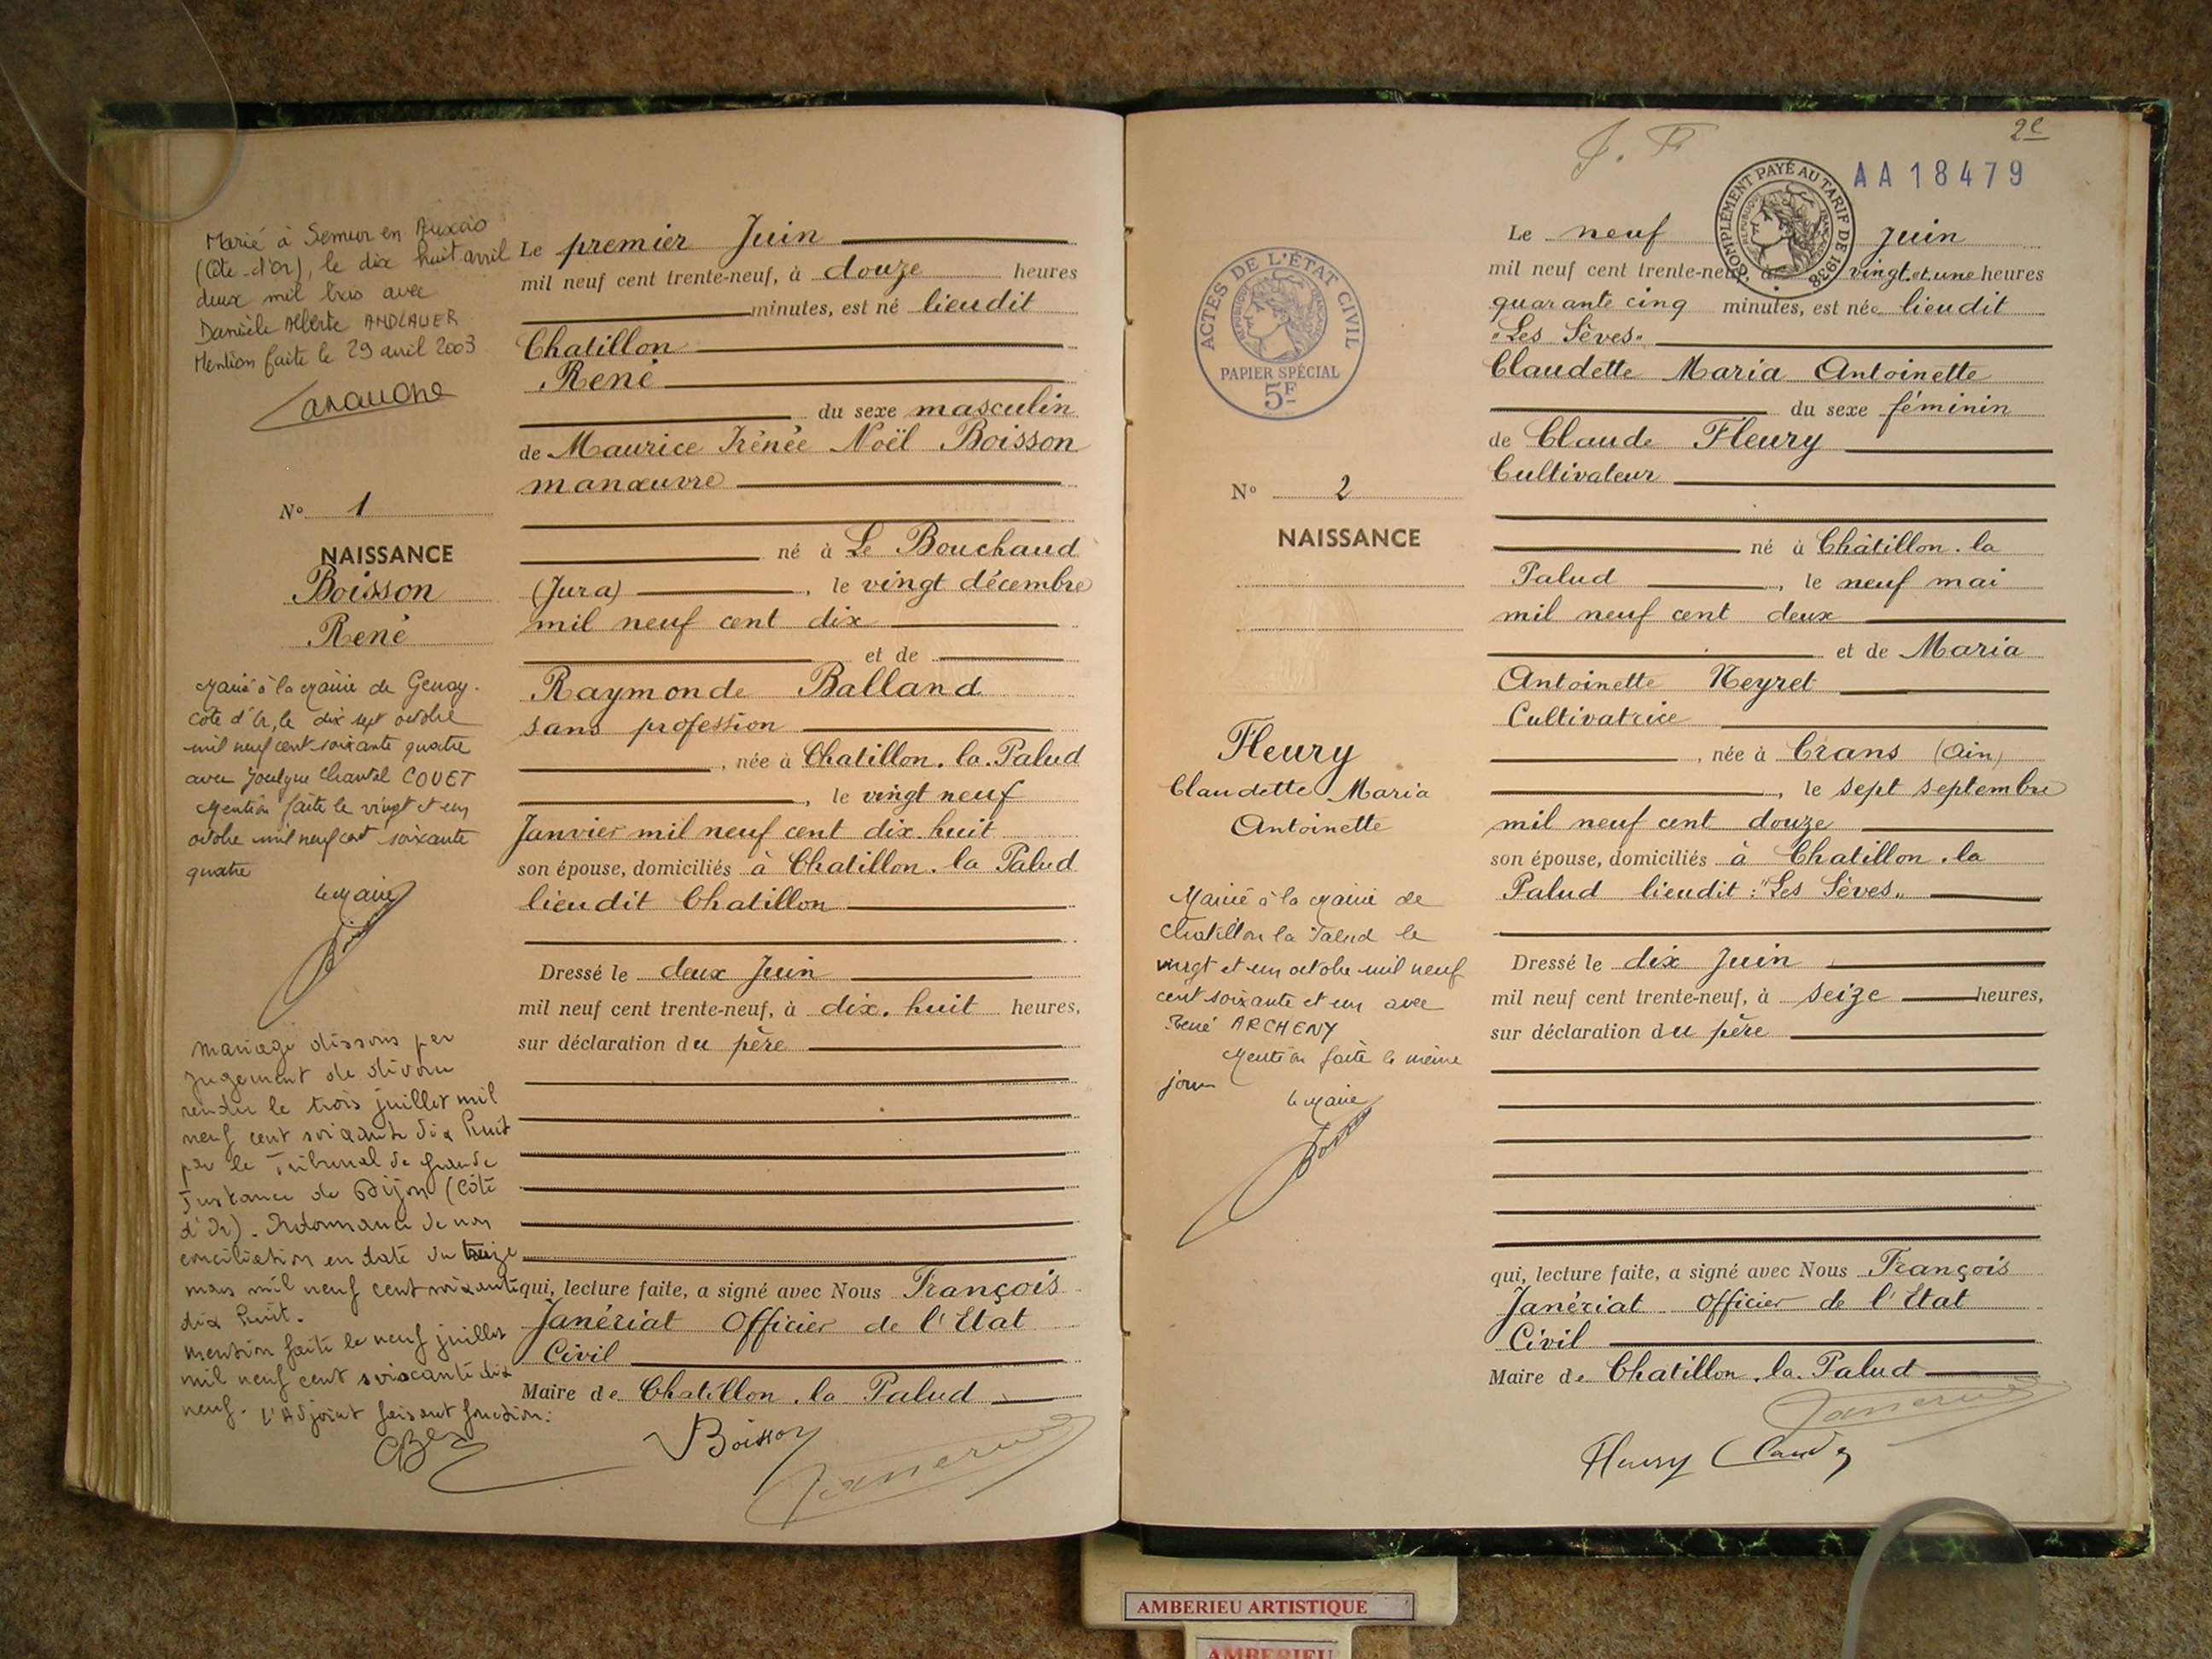 Marié à Semur en Auxois
(Côte-d'Or), le dix huit avril
deux mil trois avec
Danièle Alberte ANDLAUER
Mention faite le 29 avril 2003
N° 1
NAISSANCE
Boisson
René
Marié à la mairie de Genay.
Côte d'Or, le dix sept octobre
mil neuf cent soixante quatre
avec Jocelyne Chantal COUET
Mention faite le vingt et un
octobre mil neuf cent soixante
quatre
le Maire
Mariage dissous par
jugement de divorce
rendu le trois juillet mil
neuf cent soixante dix huit
par le Tribunal de Grande
Instance de Dijon (Côte
d'Or). Ordonnance de non
conciliation en date du treize
mars mil neuf cent soixante
dix huit.
Mention faite le neuf juillet
mil neuf cent soixante dix
neuf. L'Adjoint faisant fonction:
Le premier Juin
mil neuf cent trente-neuf, à douze heures
minutes, est né lieudit
Chatillon
René
du sexe masculin
de Maurice Irénée Noël Boisson
manœuvre
né à Le Bouchaud
(Jura), le vingt décembre
mil neuf cent dix
et de
Raymonde Balland
sans profession
, née à Chatillon.la.Palud
, le vingt neuf
Janvier mil neuf cent dix huit
son épouse, domiciliés à Chatillon.la Palud
lieudit Chatillon
Dressé le deux Juin
mil neuf cent trente-neuf, à dix.huit heures,
sur déclaration du père
qui, lecture faite, a signé avec Nous François
Janériat Officier de l'Etat
Civil
Maire de Chatillon.la Palud
Boisson
Janeriat
J. F
2e
AA18479
COMPLÉMENT PAYÉ AU TARIF DE 1938
RÉPUBLIQUE FRANÇAISE
ACTES DE L'ÉTAT CIVIL
RÉPUBLIQUE FRANÇAISE
PAPIER SPÉCIAL
5F
N° 2
NAISSANCE
Fleury
Claudette Maria
Antoinette
Mariée à la mairie de
Chatillon la Palud le
vingt et un octobre mil neuf
cent soixante et un avec
René ARCHENY
Mention faite le même
jour
le Maire
Le neuf Juin
mil neuf cent trente-neuf, à vingt et une heures
quarante cinq minutes, est née lieudit
"Les Sèves"
Claudette Maria Antoinette
du sexe féminin
de Claude Fleury
Cultivateur
né à Châtillon.la
Palud, le neuf mai
mil neuf cent deux
et de Maria
Antoinette Neyret
Cultivatrice
, née à Crans (Ain)
, le sept septembre
mil neuf cent douze
son épouse, domiciliés à Chatillon.la
Palud lieudit: "Les Sèves"
Dressé le dix Juin
mil neuf cent trente-neuf, à seize heures,
sur déclaration du père
qui, lecture faite, a signé avec Nous François
Janériat Officier de l'Etat
Civil
Maire de Chatillon.la.Palud
Janeriat
Fleury Claude
AMBERIEU ARTISTIQUE
AMBERIEU